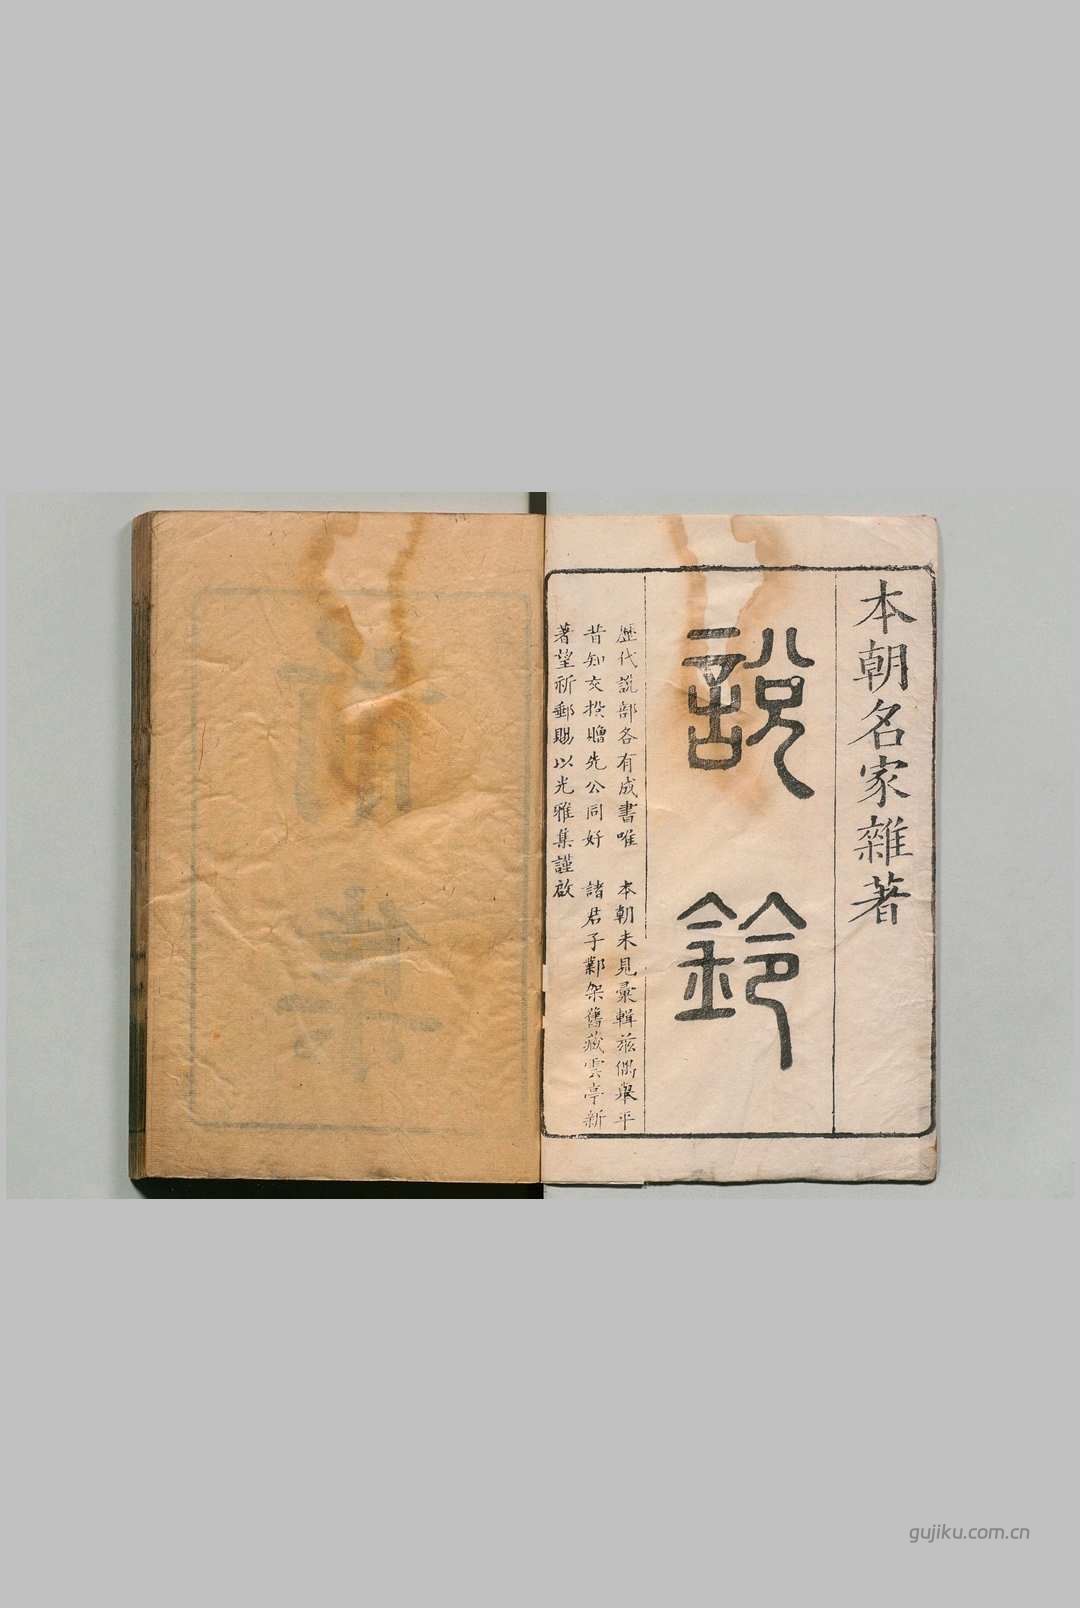 本朝名家雜著
說鈴
歷代說部各有成書唯　本朝未見彙輯茲偶舉平
昔知交投贈先公同好　諸君子鄴架舊藏雲亭新
著望祈郵賜以光雅集謹啟
gujiku.com.cn